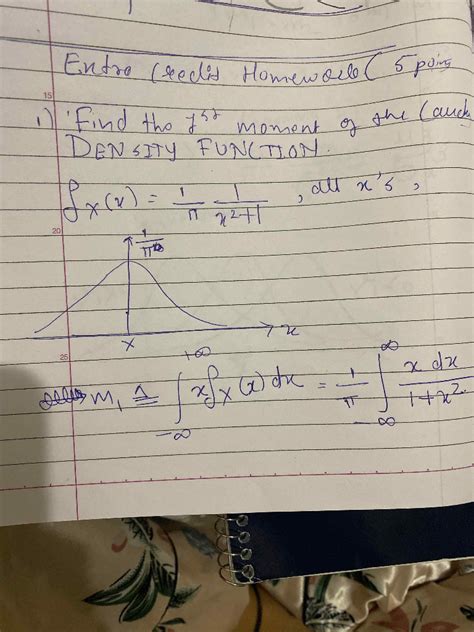 Extra Credit Homework ( 5 poin
1) Find the 1st moment of the Cauch
DENSITY FUNCTION.
f_X(x) = 1/π 1/(x²+1) , all x's ,
1/π
x
X
m₁ ≜ ∫_{-∞}^{+∞} x f_X(x) dx = 1/π ∫_{-∞}^{∞} x dx/(1+x²)
15
20
25